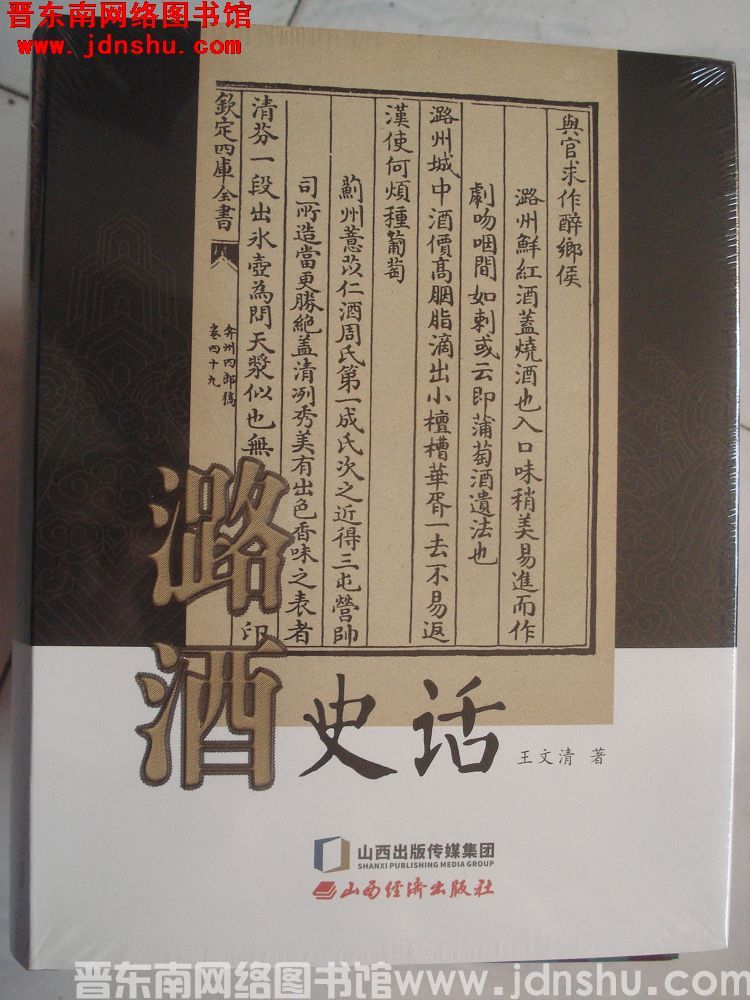 晋东南网络图书馆
www.jdnshu.com
與官求作醉鄉侯
潞州鮮紅酒蓋燒酒也入口味稍美易進而作
劇吻咽間如刺或云即蒲萄酒遺法也
潞州城中酒價高胭脂滴出小檀槽華胥一去不易返
漢使何煩種葡萄
薊州薏苡仁酒周氏第一成氏次之近得三屯營帥
司所造當更勝絶盖清冽秀美有出色香味之表者
清芬一段出氷壺為問天漿似也無
印
欽定四庫全書
弇州四部稿
卷四十九
潞酒
史话
王文清 著
山西出版传媒集团
SHANXI PUBLISHING MEDIA GROUP
山西经济出版社
晋东南网络图书馆www.jdnshu.com